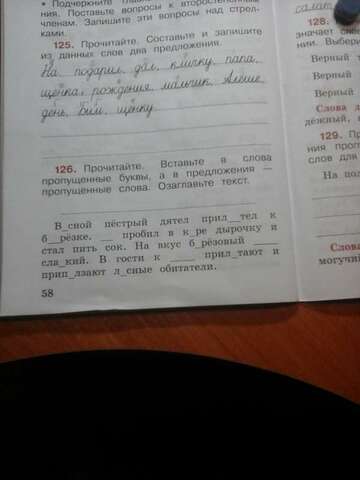 • Подчеркните
ния. Поставьте вопросы к второстепенным
членам. Запишите эти вопросы над стрел-
ками.
125. Прочитайте. Составьте и запишите
из данных слов два предложения.
На, подарил, дал, кличку, папа,
щенка, рождения, мальчик, Алёше,
день, Бим, щенку.
126. Прочитайте. Вставьте в слова
пропущенные буквы, а в предложения —
пропущенные слова. Озаглавьте текст.
В_сной пёстрый дятел прил_тел к
б__рёзке. ___ пробил в к_ре дырочку и
стал пить сок. На вкус б_рёзовый ____
сла_кий. В гости к ____ прил_тают и
прип_лзают л_сные обитатели.
58
салат
128.
значает
нии. Выбери
Верный т
Верный
Верный
Слова д
дёжный,
129. Пр
ния проп
слов для
На пол
Слова
могучий